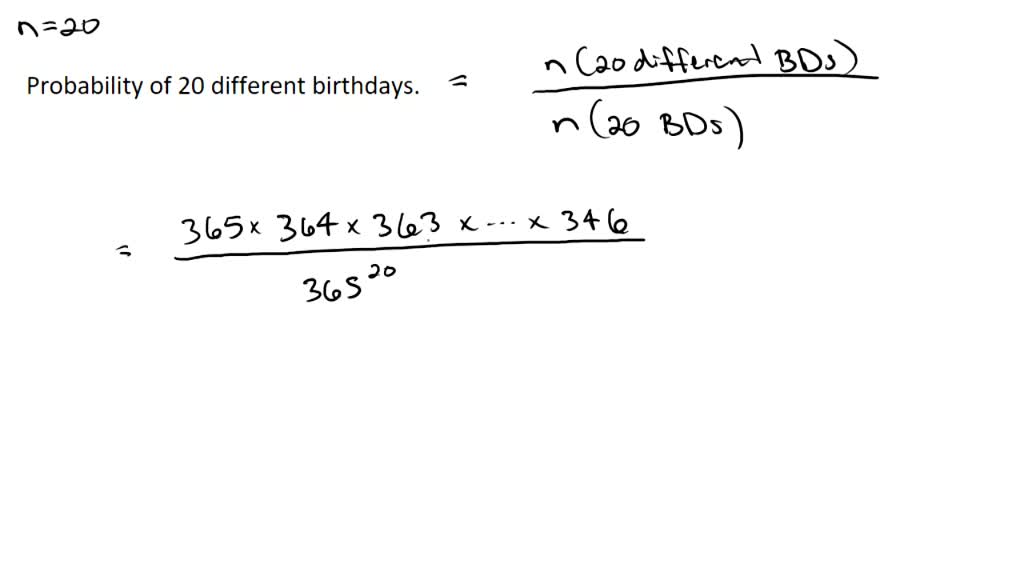 n=20
Probability of 20 different birthdays. = n(20 different BDs) / n(20 BDs)
= 365 × 364 × 363 × ... × 346 / 365^20